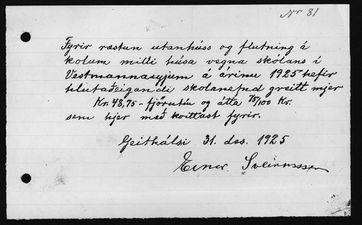 Nr 31
Fyrir ræstun utanhúss og flutning á
kolum milli húsa vegna skólans í
Vestmannaeyjum á árinu 1925 hefir
skolanefnd greitt mjer
Kr. 48,75 - fjörutíu og átta 75/100 Kr.
sem hjer með kvittast fyrir.
Geithálsi 31. des. 1925
Einar Sveinsson